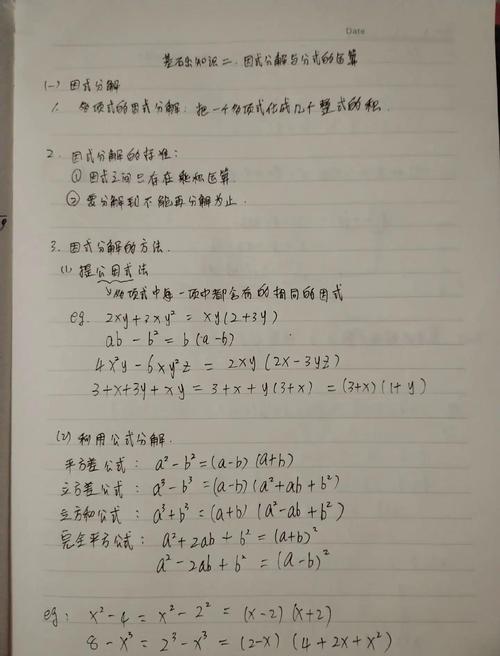 Date
基础知识二. 因式分解与分式的运算
(一) 因式分解
1. 多项式的因式分解: 把一个多项式化成几个整式的积.
2. 因式分解的标准:
① 因式之间只存在乘积运算
② 要分解到不能再分解为止.
3. 因式分解的方法.
(1) 提公因式法
多项式中每一项中都含有的相同的因式
eg. 2xy+3xy² = xy(2+3y)
ab - b² = b(a-b)
4x²y - 6xy²z = 2xy(2x-3yz)
3+x+3y+xy = 3+x+y(3+x) = (3+x)(1+y)
(2) 利用公式分解.
平方差公式: a²-b²=(a-b)(a+b)
立方差公式: a³-b³=(a-b)(a²+ab+b²)
立方和公式: a³+b³=(a+b)(a²-ab+b²)
完全平方公式: a²+2ab+b²=(a+b)²
a²-2ab+b²=(a-b)²
eg: x²-4=x²-2²=(x-2)(x+2)
8-x³=2³-x³=(2-x)(4+2x+x²)